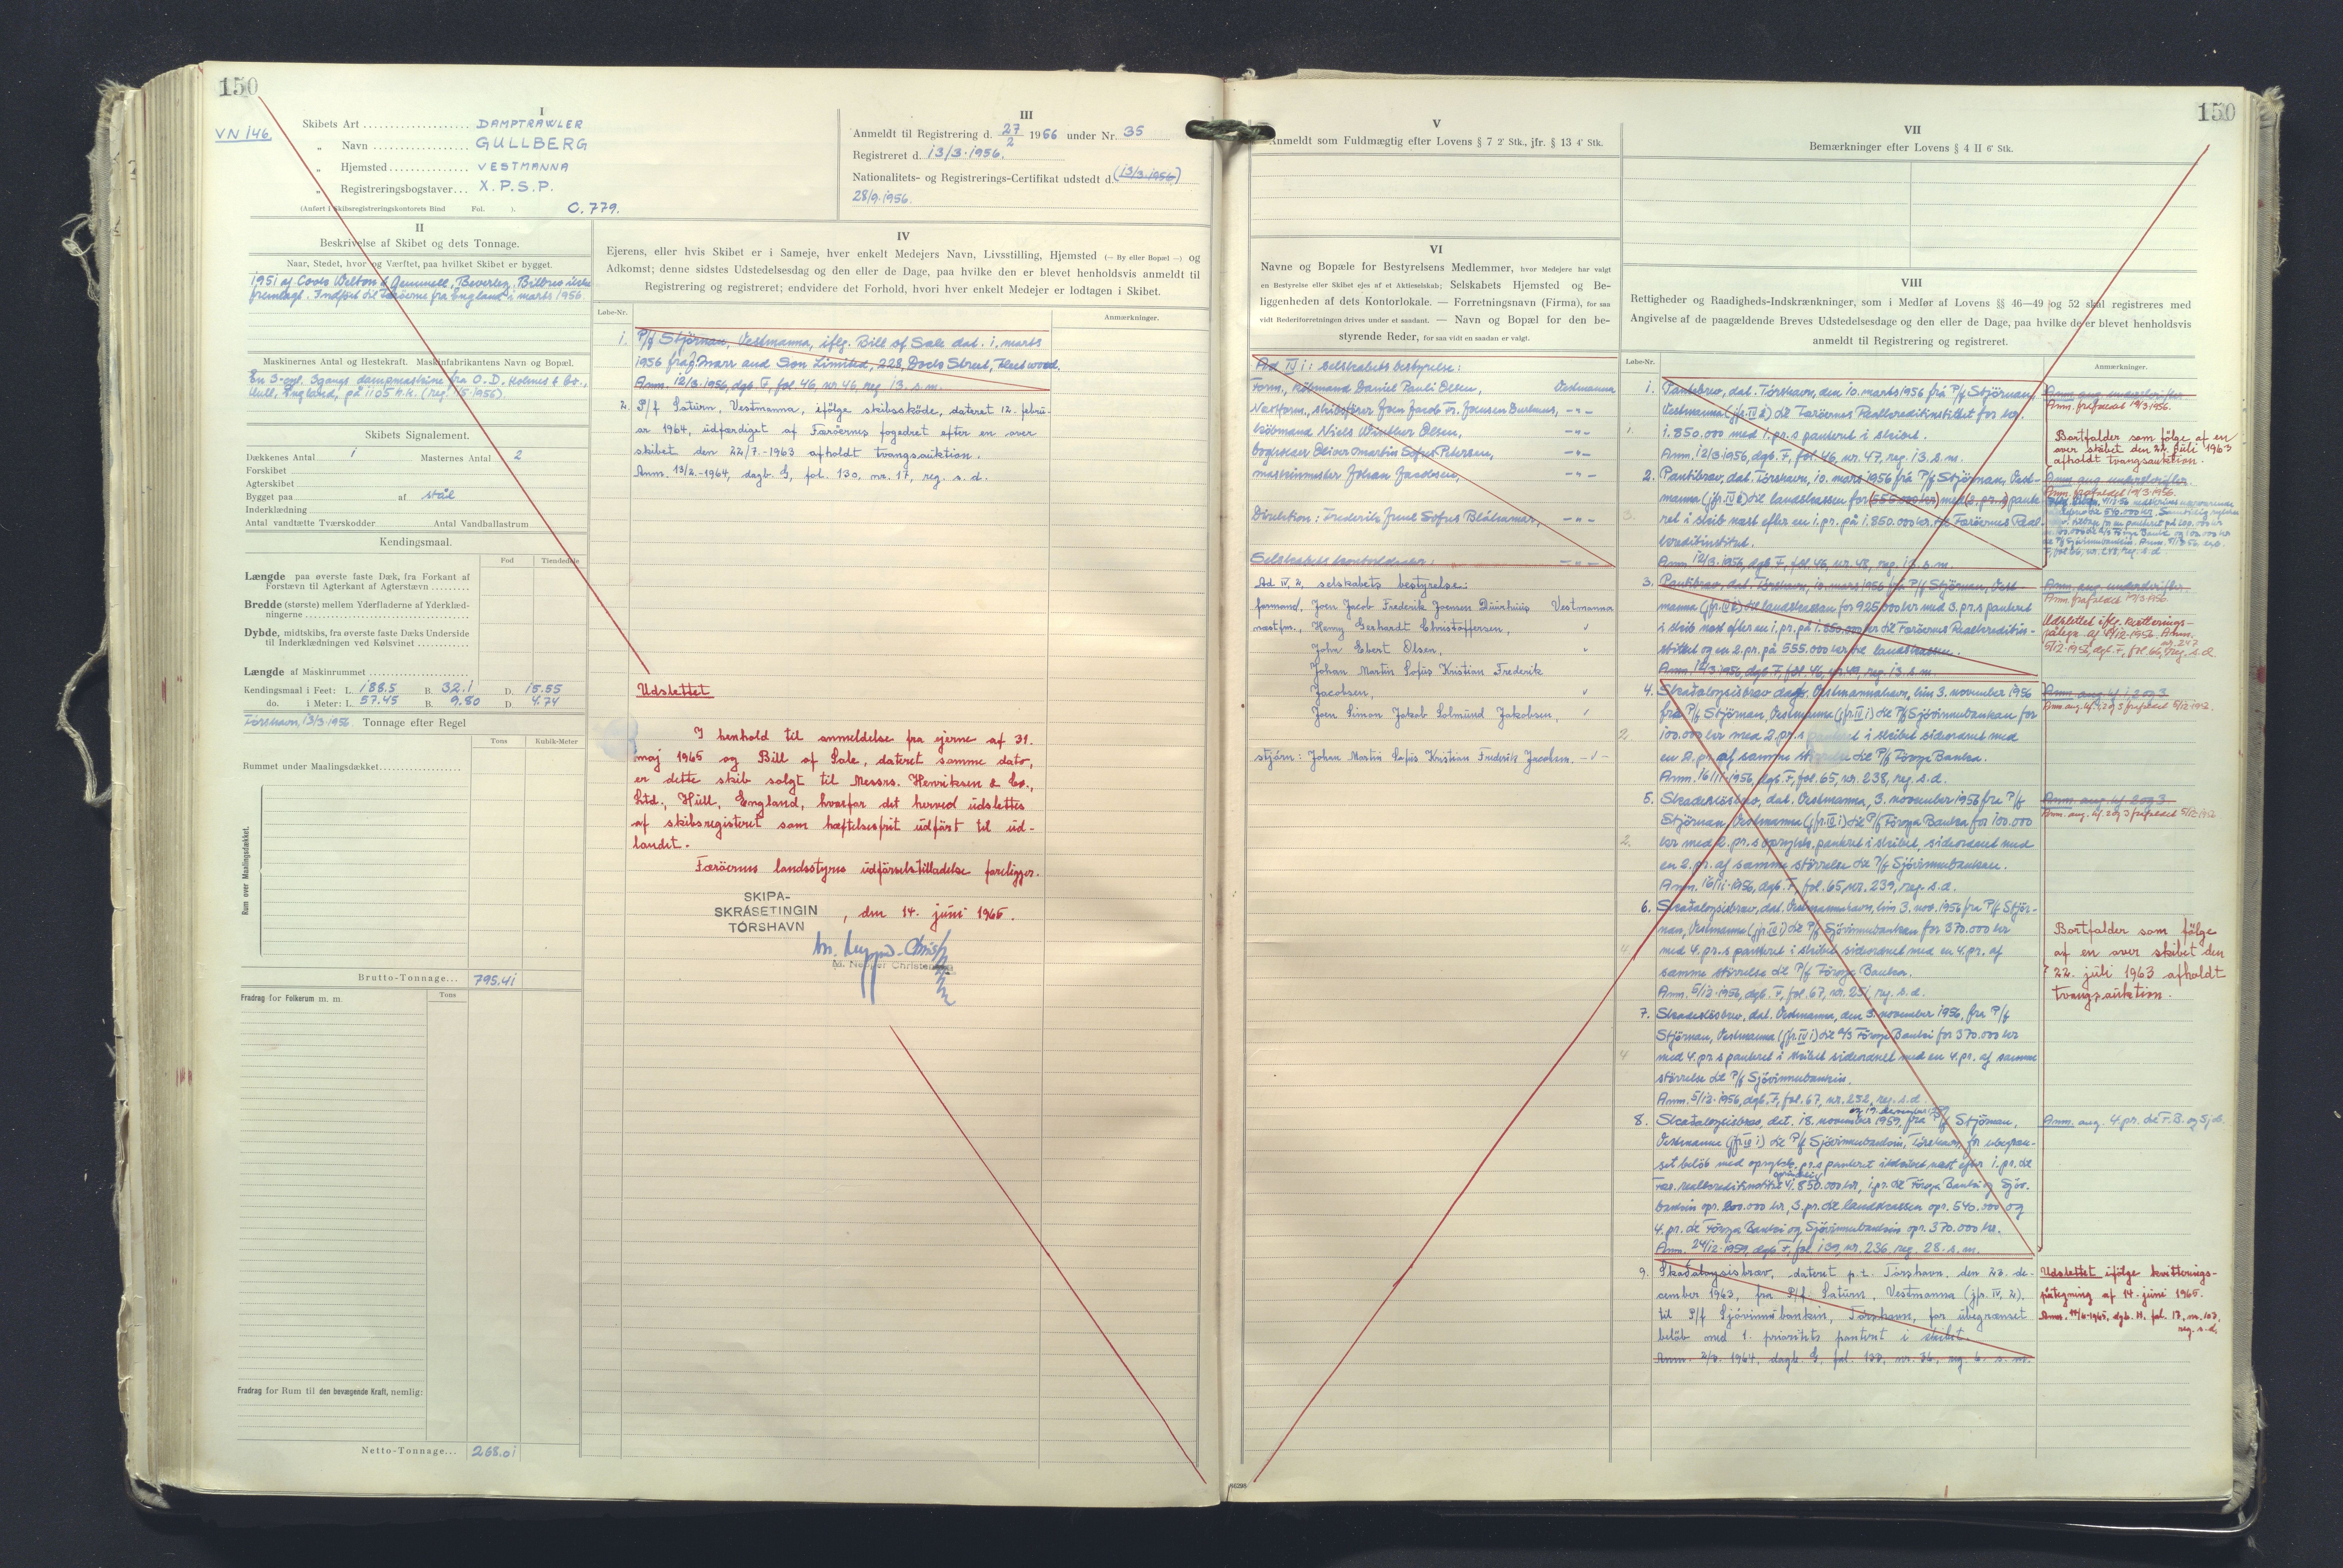 150
VN 146
I
Skibets Art DAMPTRAWLER
„ Navn GULLBERG
„ Hjemsted VESTMANNA
„ Registreringsbogstaver... X.P.S.P.
(Anført i Skibsregistreringskontorets Bind Fol. ).
C. 779.
III
Anmeldt til Registrering d. 27/2 1956 under Nr. 35
Registreret d. 13/3.1956.
Nationalitets- og Registrerings-Certifikat udstedt d. (13/3.1956)
28/9.1956.
II
Beskrivelse af Skibet og dets Tonnage.
Naar, Stedet, hvor og Værftet, paa hvilket Skibet er bygget.
1951 af Cook Welton & Gemmell, Beverley. Bilbrev ikke
fremlagt. Indført til Færöerne fra England i marts 1956.
Maskinernes Antal og Hestekraft. Maskinfabrikantens Navn og Bopæl.
En 3-cyl. 3gangs dampmaskine fra C. D. Holmes & Co.,
Hull, England, på 1105 h.k. (reg. 1/5-1956).
Skibets Signalement.
Dækkenes Antal 1 Masternes Antal 2
Forskibet
Agterskibet
Bygget paa af stål
Inderklædning
Antal vandtætte Tværskodder Antal Vandballastrum
Kendingsmaal.
Fod Tiendedele
Længde paa øverste faste Dæk, fra Forkant af
Forstævn til Agterkant af Agterstævn
Bredde (største) mellem Yderfladerne af Yderklæd-
ningerne
Dybde, midtskibs, fra øverste faste Dæks Underside
til Inderklædningen ved Kølsvinet
Længde af Maskinrummet
Kendingsmaal i Feet: L. 188.5 B. 32.1 D. 15.55
do. i Meter: L. 57.45 B. 9.80 D. 4.74
Tórshavn, 13/3.1956. Tonnage efter Regel
Tons Kubik-Meter
Rummet under Maalingsdækket
Rum over Maalingsdækket.
Brutto-Tonnage... 795.41
Fradrag for Folkerum m. m. Tons
Fradrag for Rum til den bevægende Kraft, nemlig:
Netto-Tonnage... 268.01
IV
Ejerens, eller hvis Skibet er i Sameje, hver enkelt Medejers Navn, Livsstilling, Hjemsted (— By eller Bopæl —) og
Adkomst; denne sidstes Udstedelsesdag og den eller de Dage, paa hvilke den er blevet henholdsvis anmeldt til
Registrering og registreret; endvidere det Forhold, hvori hver enkelt Medejer er lodtagen i Skibet.
Løbe-Nr. Anmærkninger.
1. P/f Stjörnan, Vestmanna, iflg. Bill of Sale dat. 1. marts
1956 frá J. Marr and Son Limited, 228, Dock Street, Fleetwood.
Anm. 12/3.1956, dgb. F, fol. 46, nr. 46, reg. 13. s. m.
2. P/f Saturn, Vestmanna, ifölge skibsskøde, dateret 12. febru-
ar 1964, udfærdiget af Færöernes fogedret efter en over
skibet den 22/7.-1963 afholdt tvangsauktion.
Anm. 13/2.-1964, dagb. G, fol. 130, nr. 17, reg. s. d.
Udslettet
I henhold til anmeldelse fra ejerne af 31.
maj 1965 og Bill of Sale, dateret samme dato,
er dette skib solgt til Messrs. Henriksen & Co.,
Ltd., Hull, England, hvorfor det herved udslettes
af skibsregisteret som hæftelsesfrit udført til ud-
landet.
Færöernes landsstyres udførselstilladelse foreligger.
SKIPA-
SKRÁSETINGIN
TÓRSHAVN , den 14. juni 1965.
150
V
Anmeldt som Fuldmægtig efter Lovens § 7 2' Stk., jfr. § 13 4' Stk.
VI
Navne og Bopæle for Bestyrelsens Medlemmer, hvor Medejere har valgt
en Bestyrelse eller Skibet ejes af et Aktieselskab; Selskabets Hjemsted og Be-
liggenheden af dets Kontorlokale. — Forretningsnavn (Firma), for saa
vidt Rederiforretningen drives under et saadant. — Navn og Bopæl for den be-
styrende Reder, for saa vidt en saadan er valgt.
Ad IV 1: Selskabets bestyrelse:
Form., købmand Daniel Pauli Olsen, Vestmanna
Næstform., skibsfører Joen Jacob Fr. Joensen Duurhuus, -"-
købmand Niels Winther Olsen, -"-
bogholder Oliver Martin Sofus Petersen, -"-
maskinmester Johan Jacobsen, -"-
Direktion: Frederik Sofus Bláhamar, -"-
Selskabets kontorlokaler: -"-
Ad IV, 2, selskabets bestyrelse:
formand, Joen Jacob Frederik Joensen Duurhuus Vestmanna
næstfm., Henry Gerhardt Christoffersen,
John Ebert Olsen,
Johan Martin Sofus Kristian Frederik
Jacobsen,
Joen Simon Jakob Solmund Jakobsen,
stjórn: Johan Martin Sofus Kristian Frederik Jacobsen.
VII
Bemærkninger efter Lovens § 4 II 6' Stk.
VIII
Rettigheder og Raadigheds-Indskrænkninger, som i Medfør af Lovens §§ 46—49 og 52 skal registreres med
Angivelse af de paagældende Breves Udstedelsesdage og den eller de Dage, paa hvilke de er blevet henholdsvis
anmeldt til Registrering og registreret.
Løbe-Nr. Anmærkninger.
1. Pantebrev, dat. Tórshavn, den 10. marts 1956 frá P/f Stjörnan,
Vestmanna (jfr. IV 1) til Færöernes Realkreditinstitut for kr.
1.850.000 med 1. pr.s panteret i skibet.
Anm. 12/3.1956, dgb. F, fol. 46, nr. 47, reg. 13. s. m.
Anm. ang. underskrifter
Anm. frafaldet 19/3.1956.
Bortfalder som følge af en
over skibet den 22. juli 1963
afholdt tvangsauktion.
2. Pantebrev, dat. Tórshavn, 10. marts 1956 frá P/f Stjörnan, Vest-
manna (jfr. IV 1) til landskassen for (555.000 kr) med (2. pr.s) pante-
ret i skib næst efter en 1. pr. på 1.850.000 kr. til Færöernes Real-
kreditinstitut.
Anm. 12/3.1956, dgb. F, fol. 46, nr. 48, reg. 13. s. m.
Anm. ang. underskrifter
Anm. frafaldet 19/3.1956.
3. Pantebrev, dat. Tórshavn, 10. marts 1956 frá P/f Stjörnan, Vest-
manna (jfr. IV 1) til landskassen for 925.000 kr med 3. pr.s panteret
i skib næst efter en 1. pr. på 1.850.000 kr til Færöernes Realkreditin-
stitut og en 2. pr. på 555.000 kr til landskassen.
Anm. 12/3.1956, dgb. F, fol. 46, nr. 49, reg. 13. s. m.
Anm. ang. underskrifter
Anm. frafaldet 19/3.1956.
Udslettet iflg. kvitterings-
påtegn. af 4/12.1956. Anm.
5/12.1956, dgb. F, fol. 66, nr. 247, reg. s. d.
4. Skaðaloysisbrev dagf. Vestmannahavn, hin 3. november 1956
fra P/f Stjörnan, Vestmanna (jfr. IV 1) til P/f Sjóvinnubankan for
100.000 kr med 2. pr.s panteret i skibet sideordnet med
en 2. pr. af samme størrelse til P/f Föroya Banka.
Anm. 16/11.1956, dgb. F, fol. 65, nr. 238, reg. s. d.
Anm. ang. 1, 2 og 3
5. Skadeslösbrev, dat. Vestmanna, 3. november 1956 fra P/f
Stjörnan, Vestmanna (jfr. IV 1) til P/f Föroya Banka for 100.000
kr med 2. pr.s oprykk. panteret i skibet, sideordnet med
en 2. pr. af samme størrelse til P/f Sjóvinnubankan.
Anm. 16/11.1956, dgb. F, fol. 65, nr. 239, reg. s. d.
6. Skaðaloysisbrev, dat. Vestmannahavn, hin 3. nov. 1956 fra P/f Stjör-
nan, Vestmanna (jfr. IV 1) til P/f Sjóvinnubankan for 370.000 kr
med 4. pr.s panteret i skibet sideordnet med en 4. pr. af
samme størrelse til P/f Föroya Bankan.
Anm. 5/12.1956, dgb. F, fol. 67, nr. 251, reg. s. d.
Bortfalder som følge
af en over skibet den
22. juli 1963 afholdt
tvangsauktion.
7. Skadeslösbrev, dat. Vestmanna, den 3. november 1956, fra P/f
Stjörnan, Vestmanna (jfr. IV 1) til A/S Föroya Banki for 370.000 kr
med 4. pr.s panteret i skibet sideordnet med en 4. pr. af samme
størrelse til P/f Sjóvinnubankin.
Anm. 5/12.1956, dgb. F, fol. 67, nr. 252, reg. s. d.
8. Skaðaloysisbrev, dat. 18. november 1959, fra P/f Stjörnan,
Vestmanna (jfr. IV 1) til P/f Sjóvinnubankin, Tórshavn, for ubegræn-
set beløb med oprykk. pr.s panteret i skibet næst efter 1. pr. til
Fær. realkreditinstitut 1.850.000 kr, 2. pr. til Föroya Banki og Sjóv.
bankin opr. 200.000 kr, 3. pr. til landskassen opr. 540.000 og
4. pr. til Föroya Banki og Sjóvinnubankin opr. 370.000 kr.
Anm. 24/12.1959, dgb. F, fol. 139, nr. 236, reg. 28. s. m.
Anm. ang. 4. pr. til F.B. og Sj.b.
9. Skaðaloysisbrev, dateret p.t. Tórshavn, den 23. de-
cember 1963, fra P/f Saturn, Vestmanna (jfr. IV, 2),
til P/f Sjóvinnubankin, Tórshavn, for ubegrænset
beløb med 1. prioritets panteret i skibet.
Anm. 2/3. 1964, dagb. G, fol. 132, nr. 36, reg. 6. s. m.
Udslettet ifölge kvitterings-
påtegning af 14. juni 1965.
Anm. 14/6-1965, dgb. H, fol. 17, nr. 103,
reg. s. d.